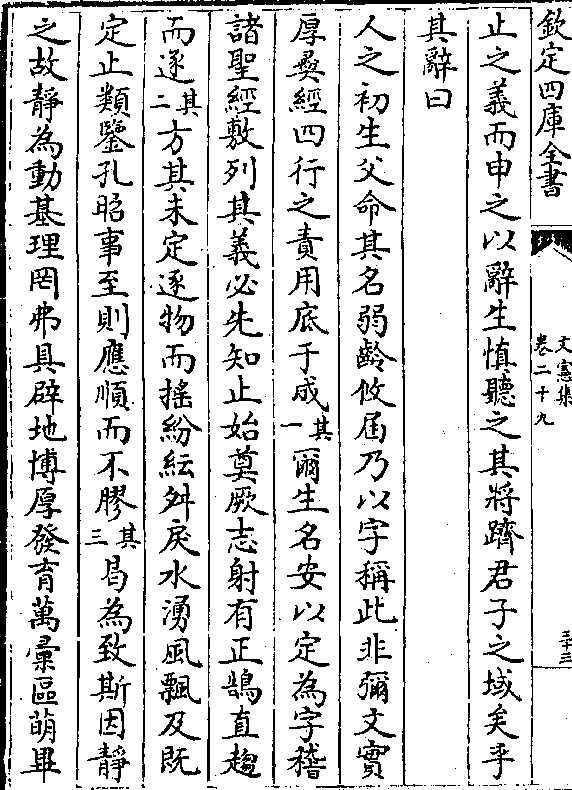 欽定四庫全書
文憲集
卷二十九
三十三
止之義而申之以辭生慎聽之其將躋君子之域矣乎
其辭曰
人之初生父命其名弱齡攸屆乃以字稱此非彌文實
厚彛經四行之責用底于成其一爾生名安以定為字稽
諸聖經敷列其義必先知止始奠厥志射有正鵠直趨
而逐其二方其未定逐物而搖紛紜舛戾水湧風飄及既
定止類鑒孔昭事至則應順而不膠其三曷為致斯因靜
之故靜為動基理罔弗具辟地博厚發育萬彙區萌畢